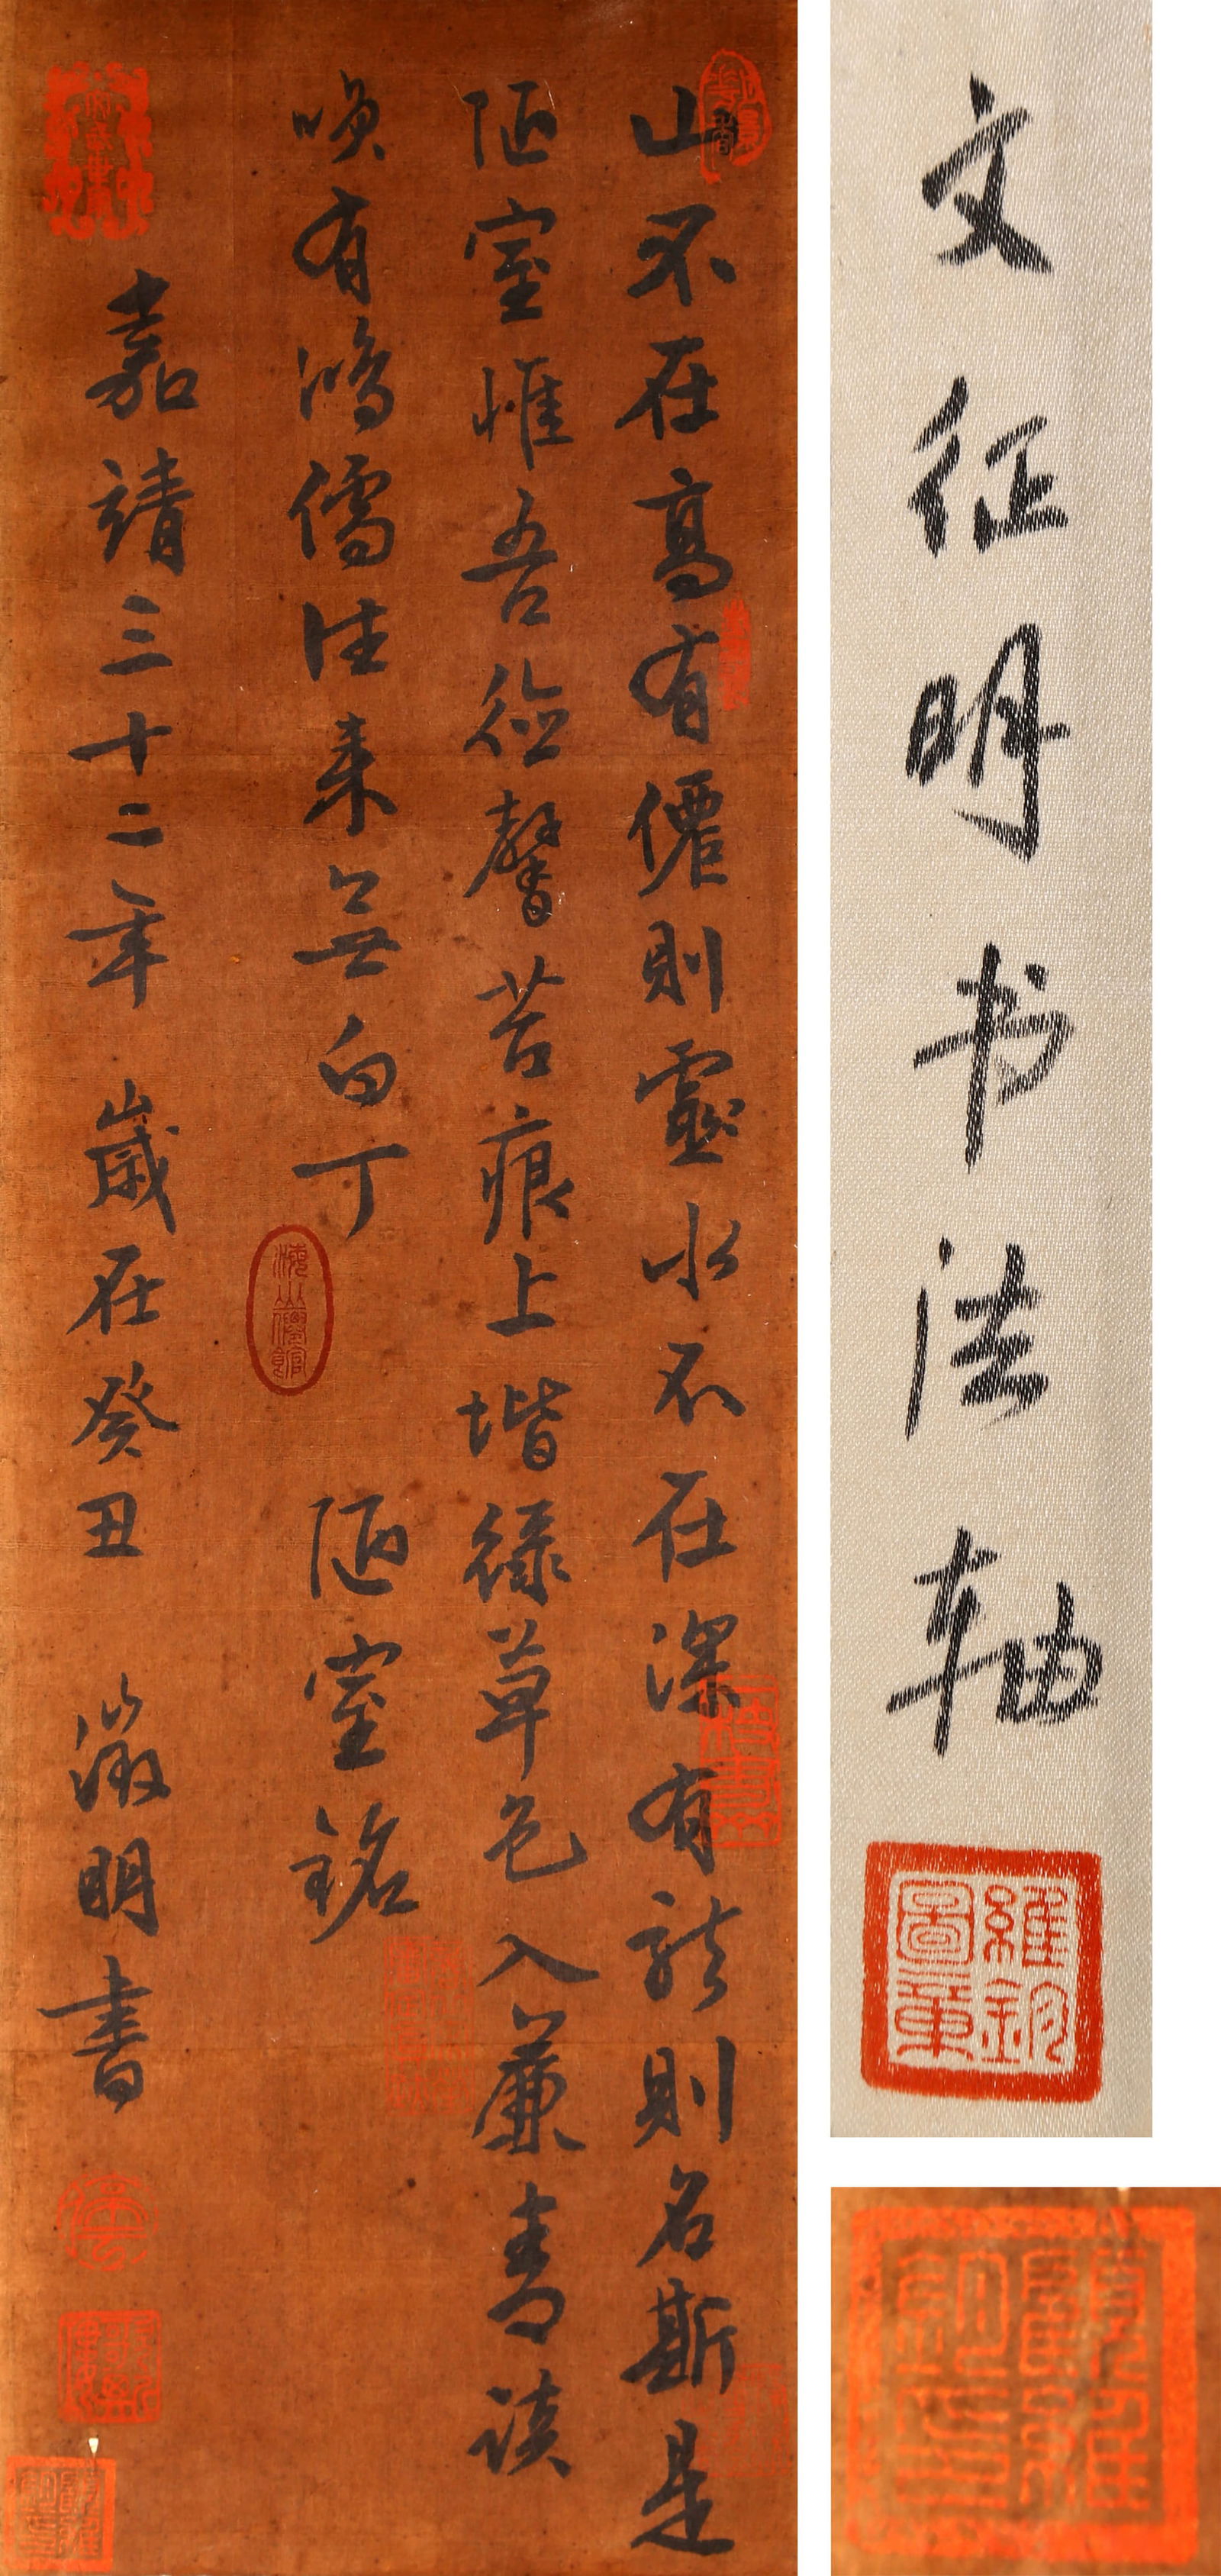 山不在高有僊則靈水不在深有龍則名斯是
陋室惟吾德馨苔痕上堦綠草色入簾青談
唤有鴻儒往来無白丁 陋室銘
嘉靖三十二年 歲在癸丑 徵明書
海山僊館
文征明书法轴
維鈞圖章
顧維鈞印